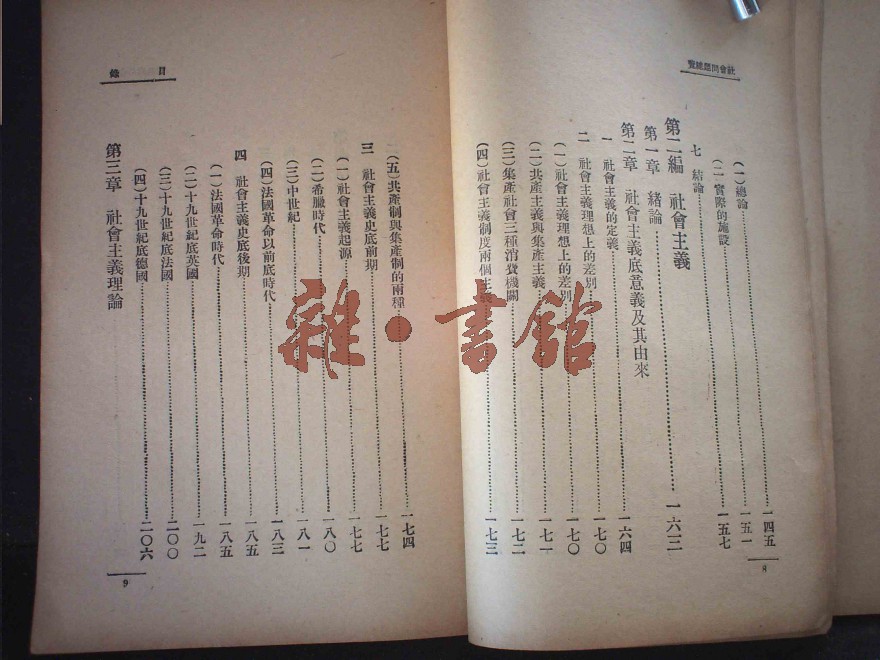 社會問題總覽
(一)總論……一四五
(二)實際的施設……一五一
七 結論……一五七
第二編 社會主義
第一章 緒論……一六三
第二章 社會主義底意義及其由來
一 社會主義的定義……一六四
二 社會主義理想上的差別……一七〇
(一)社會主義理想上的差別……一七〇
(二)共產主義與集產主義……一七一
(三)集產社會三種消費機關……一七二
(四)社會主義制度兩個主義……一七三
8
目錄
(五)共產制與集產制的兩種……一七四
三 社會主義史底前期……一七七
(一)社會主義起源……一七七
(二)希臘時代……一八〇
(三)中世紀……一八一
(四)法國革命以前底時代……一八三
四 社會主義史底後期……一八五
(一)法國革命時代……一八五
(二)十九世紀底英國……一九二
(三)十九世紀底法國……二〇〇
(四)十九世紀底德國……二〇六
第三章 社會主義理論
9
雜·書館